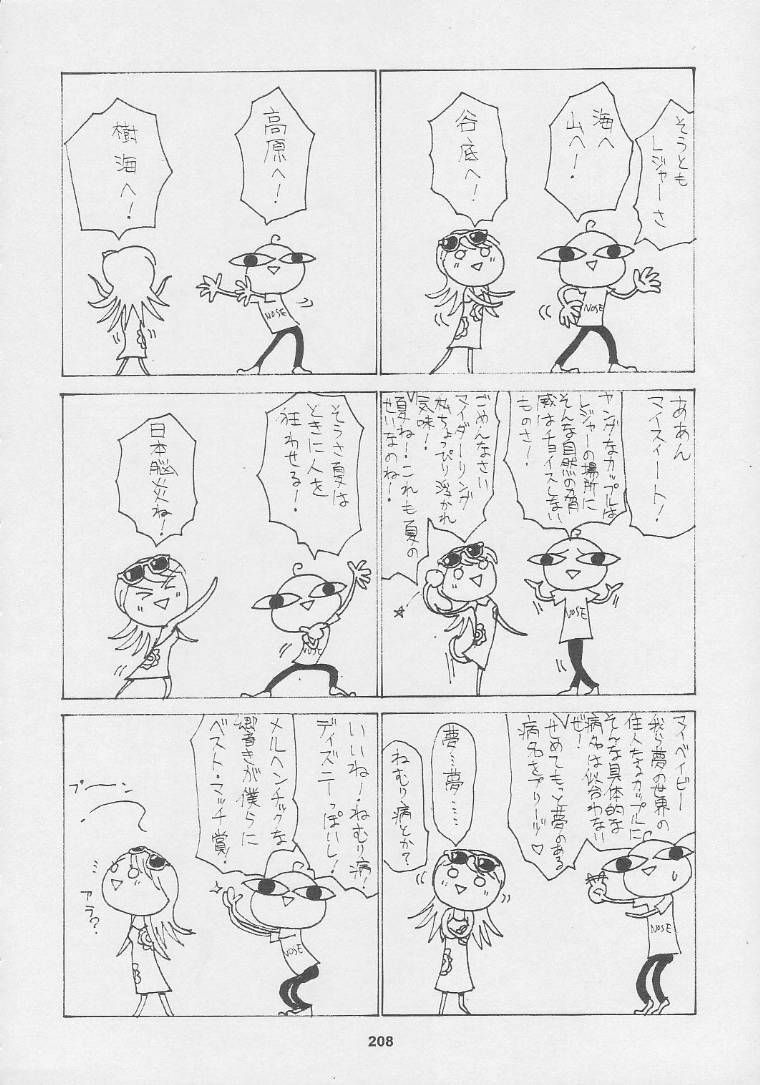 そうとも
レジャーさ
海へ
山へ！
NOSE
谷底へ！
高原へ！
NOSE
樹海へ！
ああん
マイスイート！
ヤングなカップルは
レジャーの場所に
そんな自然の脅
威はチョイスしない
ものさ！
NOSE
ごめんなさい
マイダーリング
私ちょっぴり浮かれ
気味！
夏ね！これも夏の
せいなのね！
そうさ夏は
ときに人を
狂わせる！
NOSE
日本脳炎ね！
マイベイビー
我ら夢の世界の
住人たるカップルに
そんな具体的な
病名は似合わない
ぜ！
せめてもっと夢のある
病名をプリーヅ♡
NOSE
夢…夢……
ねむり病とか？
いいねー！ねむり病！
ディズニーっぽいし！
メルヘンチックな
響きが僕らに
ベスト・マッチ賞！
NOSE
プーン
アラ？
208